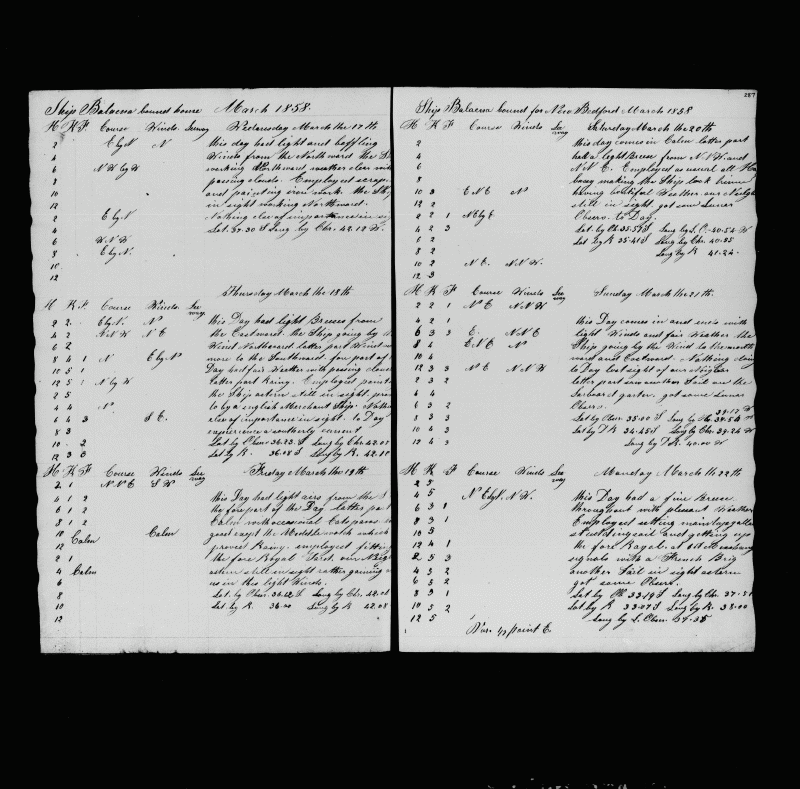 Ship Balaena bound home March 1858.
H K F Course Winds Leeway Wednesday March the 17th
2 E by N N this day had light and baffling
4 Winds from the Northward the
6 NW by W working Northward weather clear with
8 passing clouds. Employed
10 and painting iron work. the Ship
12 in sight working Northward.
2 E by N Nothing else of importance in
4 Lat. 37.30 S Long by Chr. 42.12 W.
6 W N W
8 E by N.
10
12
Thursday March the 18th
H K F Course Winds Leeway
2 2 E by N. N this Day had light Breeses from
4 2 N N W N E the Eastward. the Ship going by the
6 2 Wind Northward latter part Wind
8 4 1 N E by N more to the Southward. fore part of
10 5 1 Day had fair Weather with passing clouds
12 5 1 N by W latter part Rainy. Employed
2 5 the Ship astern still in sight.
4 4 N to by a english Merchant Ship.
6 4 3 S E. else of importance in sight. to Day
8 3 experience a southerly current
10 2 Lat by Chr. 36.23 S Long by Chr 42.07
12 3 3 Lat by R. 36.08 S Long by R. 42.10
H K F Course Winds Leeway Friday March the 19th
2 1 N N E S W
4 1 2 this Day had light airs from the S
6 1 2 the fore part of the Day latter part
8 1 2 Calm with occasional Catspaws.
10 Calm Calm good
12 proved Rainy. employed fitting
2 1 the fore Royal
4 Calm astern still in sight rather gaining
6 us in this light Winds.
8 Lat. by Chr. 36.12 S Long by Chr. 42.08
10 Lat. by R. 36.00 Long by R 42.08
12
287
Ship Balaena bound for New Bedford March 1858
H K F Course Winds Leeway Saturday March the 20th
2 this day comes in Calm latter part
4 had a light Breese from N.N.W. and
6 N N E. Employed as usual all
8 busy making the Ship look
10 3 E N E N having beutiful Weather. our Neighbor
12 2 still in sight. got some Lunar
2 2 1 NE by E Obsers. to Day.
4 2 3 Lat. by Ob. 35.59 S Long by L. O. 40.54 W
6 2 Lat by R 35.41 S Long by Chr. 40.55
8 2 Long by R 41.24
10 2 N E. N N W.
12 3
H K F Course Winds Leeway Sunday March the 21th.
2 2 1 N E N N W
4 2 1 this Day comes in and ends with
6 3 3 E. N N E light Winds and fair Weather the
8 4 E N E N Ship going by the Wind to the north
10 4 ward and Eastward. Nothing
12 3 3 N E N N W to Day lost sight of our Neighbor
2 3 2 latter part saw another Sail on the
4 4 Larboard quarter. got some Lunar
6 3 2 Obsers. 39.17 W
8 3 3 Lat by Obser. 35.00 S Long by Chr 38.54 W
10 3 3 Lat by D R 34.45 S Long by Chr 39.26 W
12 4 3 Long by D. R. 40.00 W
H K F Course Winds Leeway Monday March the 22th
2 5
4 5 N E by N. N W. this Day had a fine Breese
6 3 1 throughout with plesent Weather
8 3 1 Employed setting main topgallant
10 5 studdingsail and getting up
12 4 1 the fore Royal.
2 5 3 signals with a French Brig
4 5 2 another Sail in sight astern
6 3 2 got some Obsers.
8 3 1 Lat by Ob 33.19 S Long by Chr. 37.31
10 3 2 Lat by R 33.07 S Long by R. 38.00
12 5 Long by L. Obser. 37.35
Var. 1/2 point E.